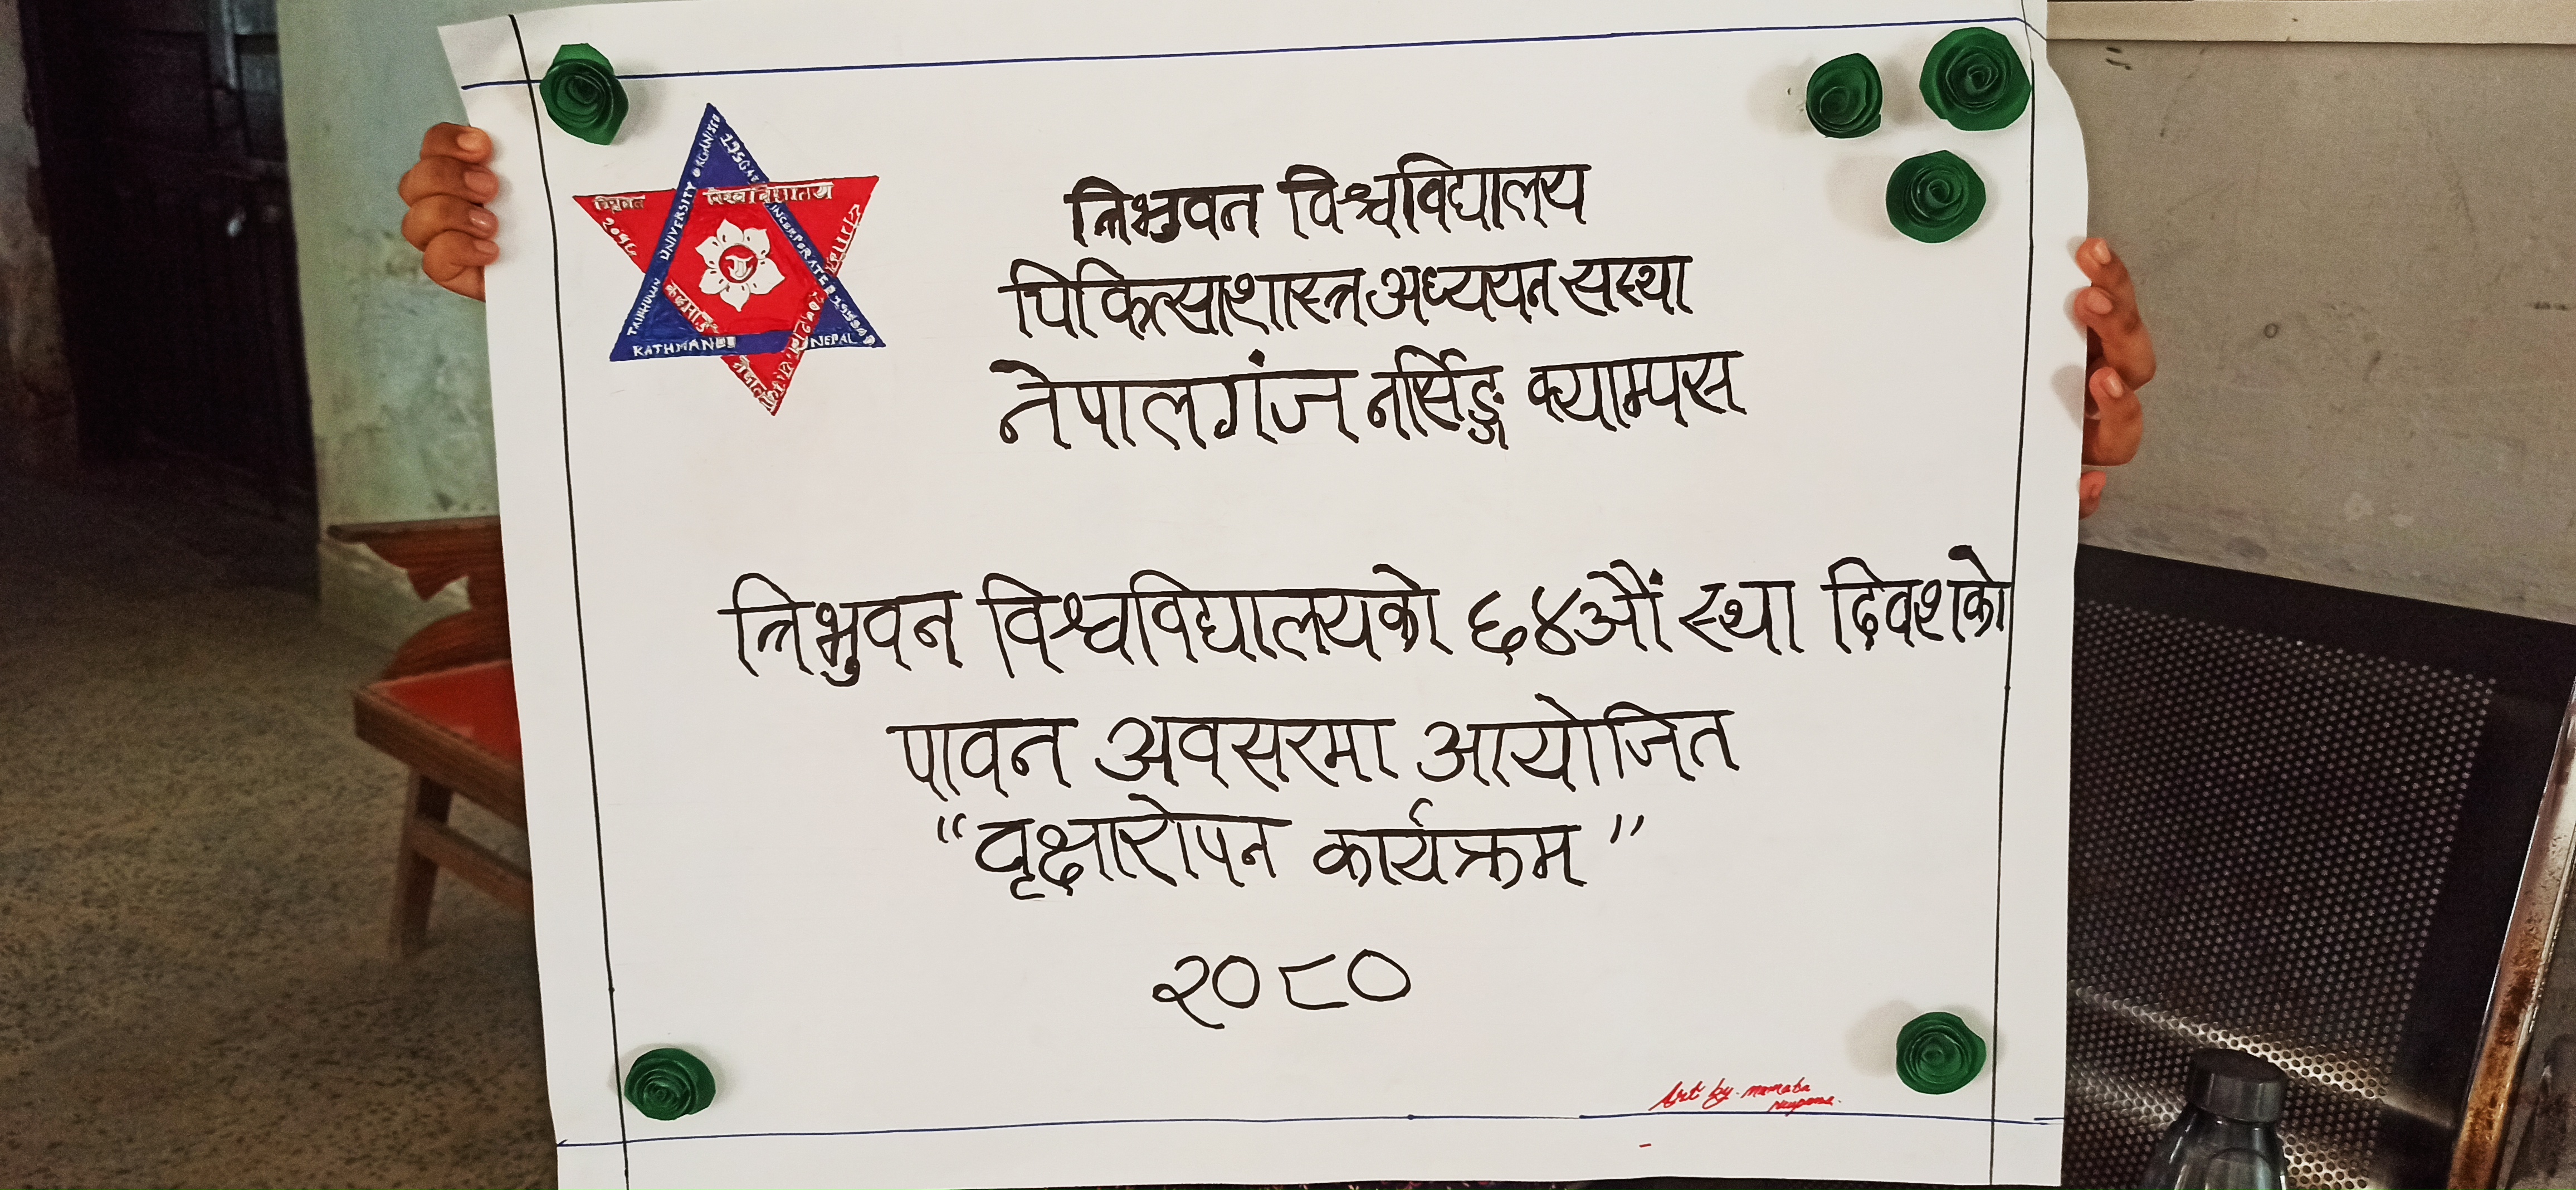 त्रिभुवन विश्वविद्यालय
चिकित्साशास्त्र अध्ययन सस्था
नेपालगंज नर्सिङ्ग क्याम्पस
त्रिभुवन विश्वविद्यालयको ६४औं स्था दिवशको
पावन अवसरमा आयोजित
“वृक्षारोपन कार्यक्रम”
२०८०
TRIBHUWN UNIVERSITY ORGANISED
KATHMANDU NEPAL
त्रिभुवन विश्वविद्यालय
Art by. mamata
Neupane.